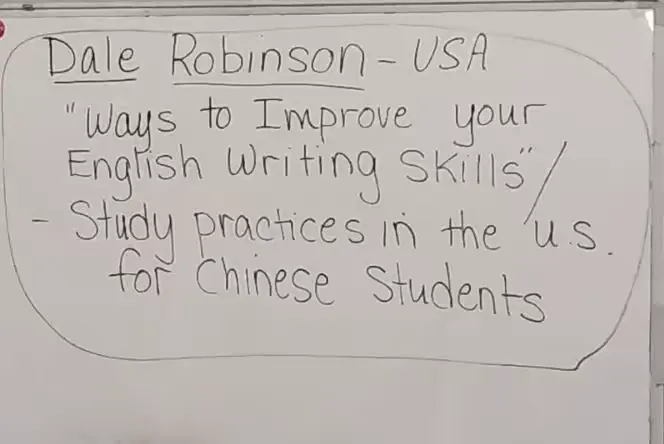 Dale Robinson - USA
"Ways to Improve your
English Writing Skills" /
- Study practices in the U.S.
for Chinese Students